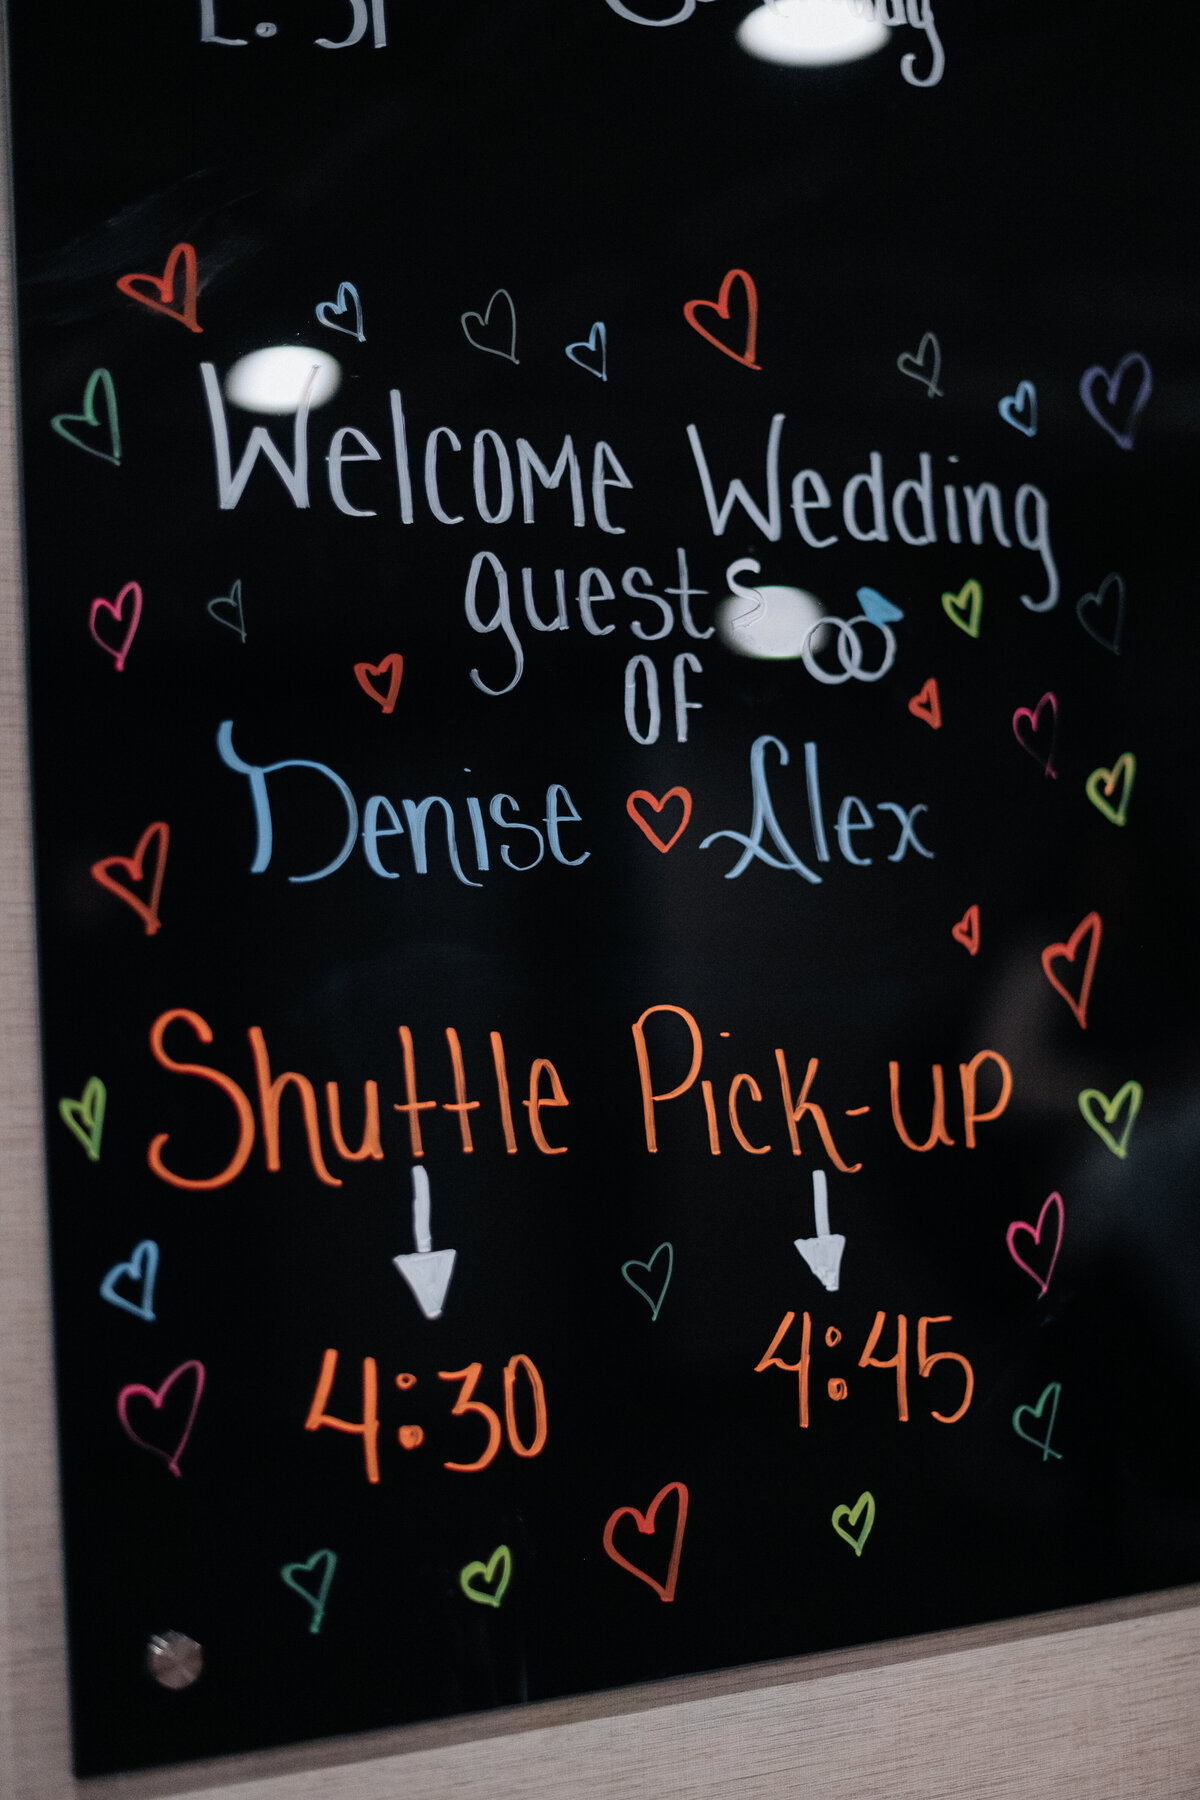 Welcome Wedding
guests
of
Denise Alex
Shuttle Pick-up
4:30 4:45